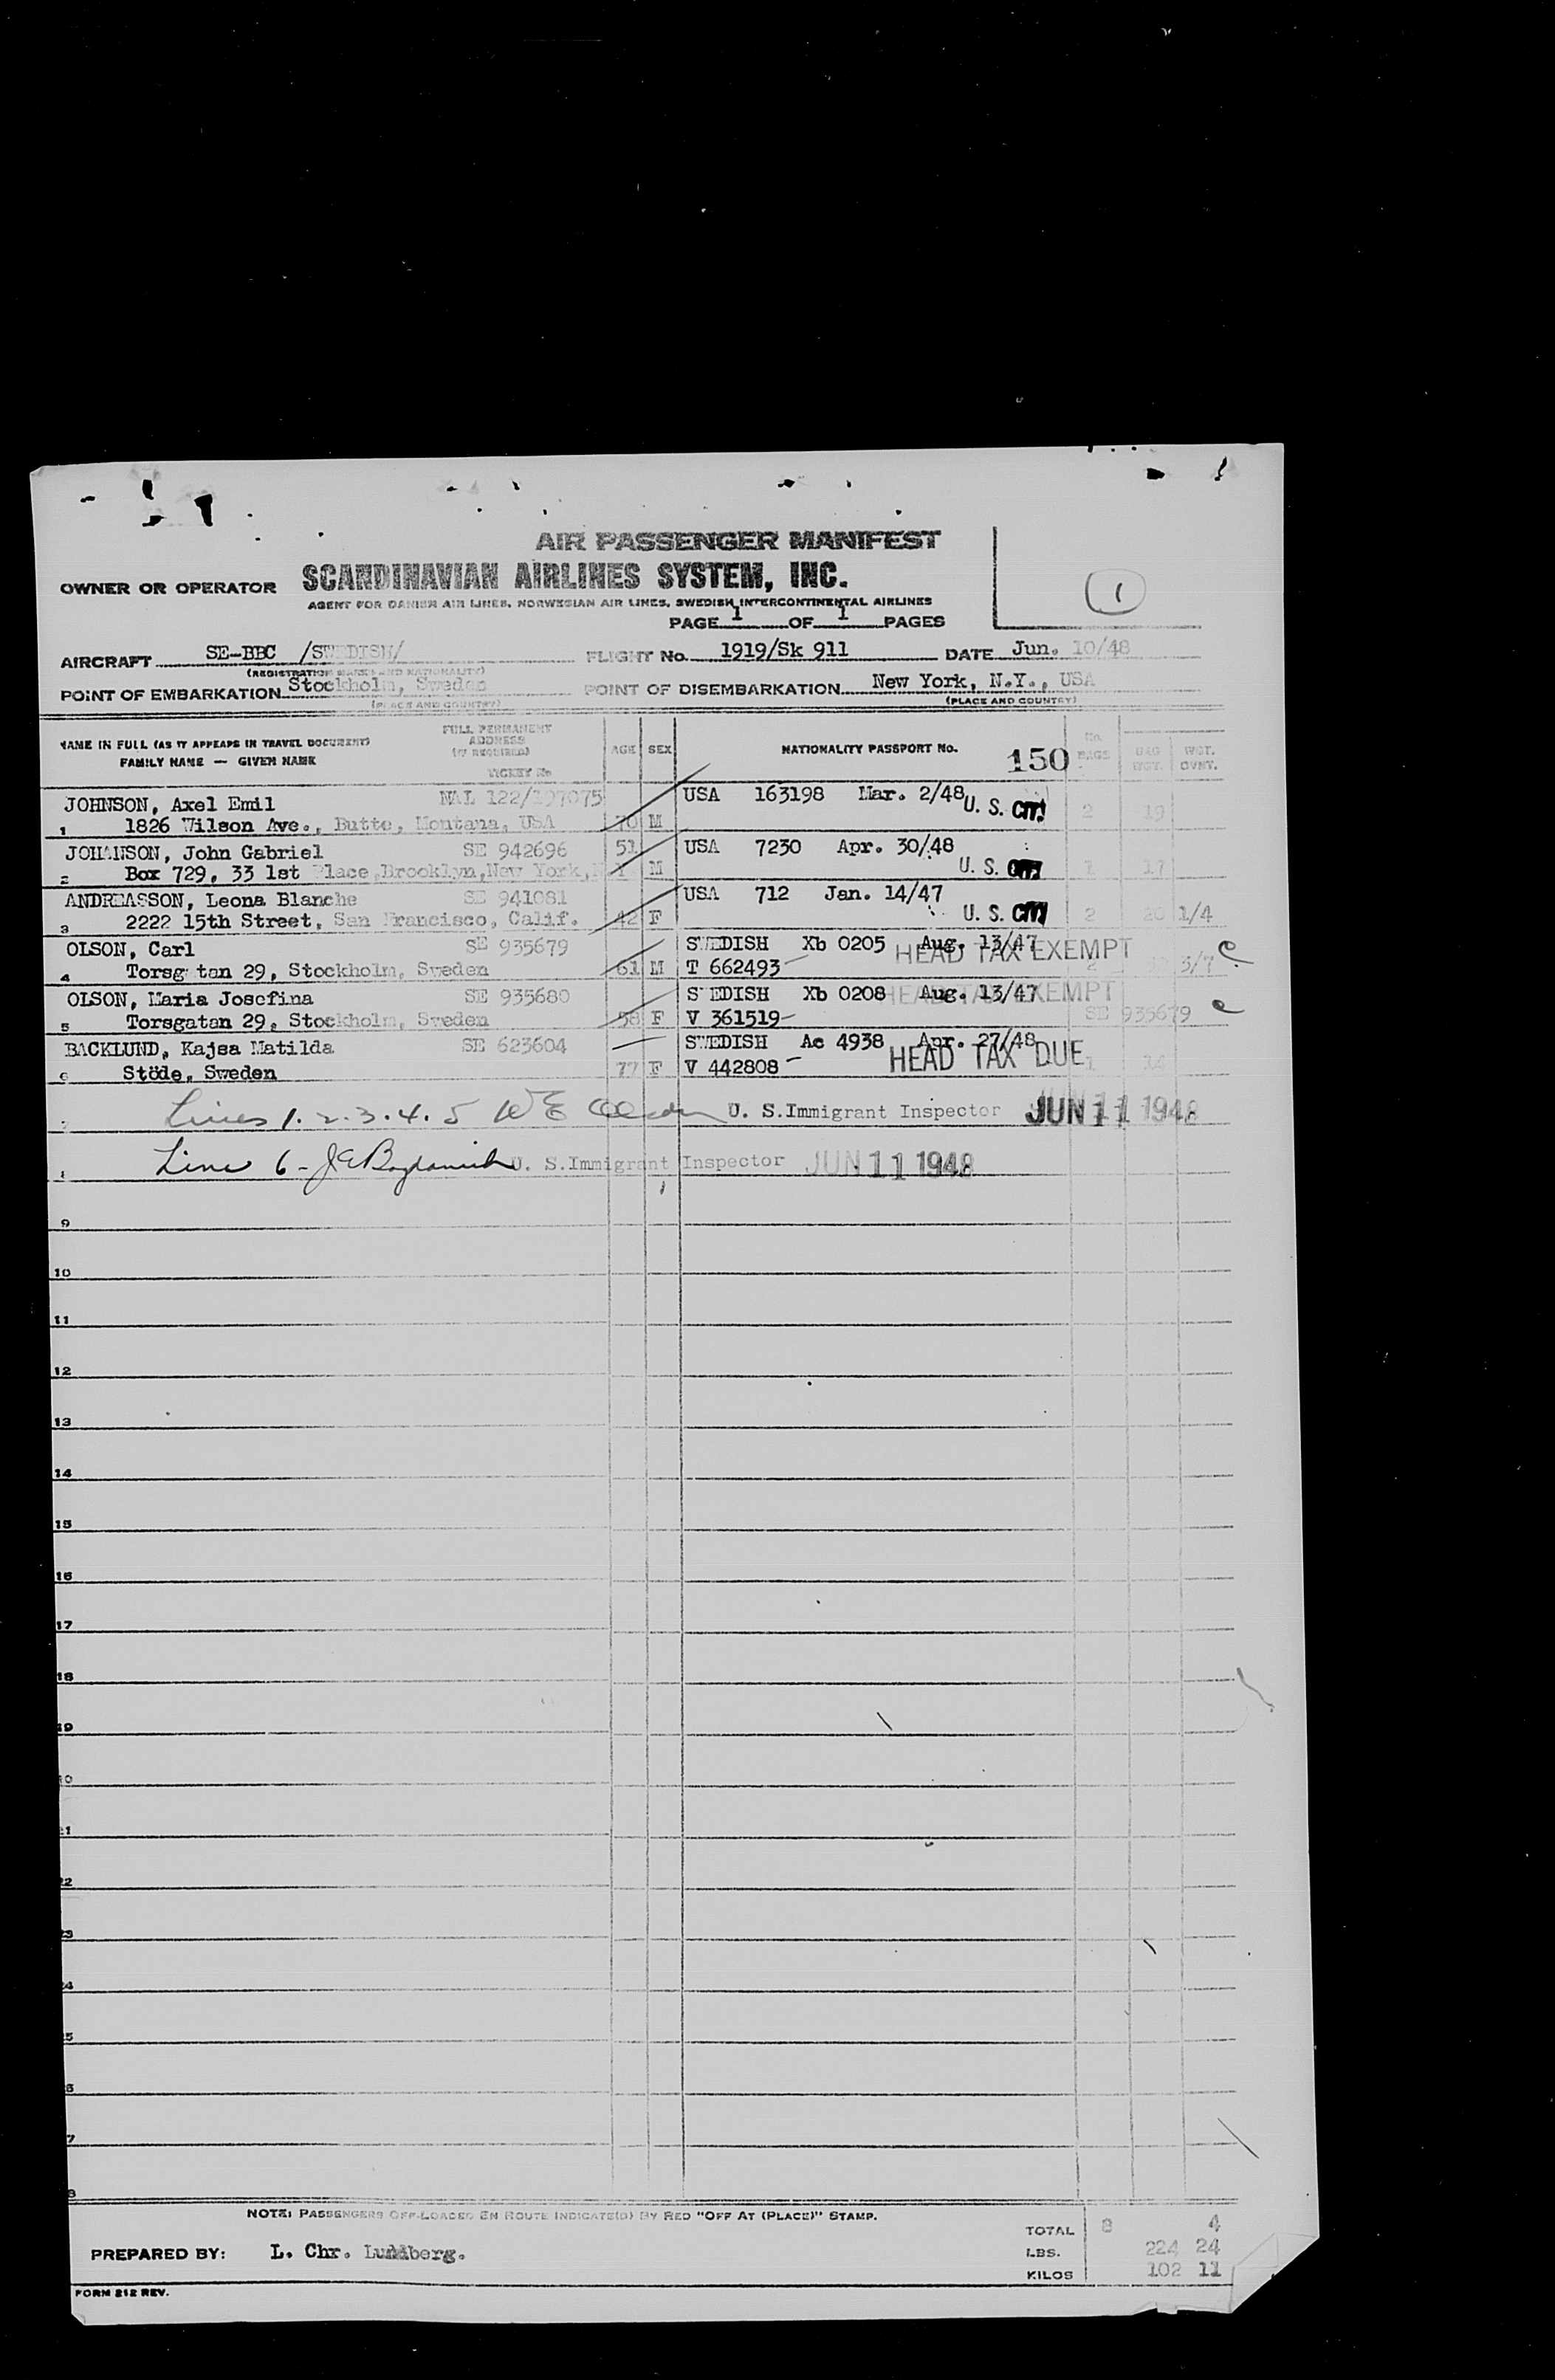 AIR PASSENGER MANIFEST
1
OWNER OR OPERATOR SCANDINAVIAN AIRLINES SYSTEM, INC.
AGENT FOR DANISH AIR LINES, NORWEGIAN AIR LINES, SWEDISH INTERCONTINENTAL AIRLINES
PAGE 1 OF 1 PAGES
AIRCRAFT SE-BBC /SWEDISH/ FLIGHT No. 1919/Sk 911 DATE Jun. 10/48
(REGISTRATION MARKS AND NATIONALITY)
POINT OF EMBARKATION Stockholm, Sweden POINT OF DISEMBARKATION New York, N.Y., USA
(PLACE AND COUNTRY) (PLACE AND COUNTRY)
NAME IN FULL (AS IT APPEARS IN TRAVEL DOCUMENT)
FAMILY NAME — GIVEN NAME
FULL PERMANENT
ADDRESS
(IF REQUIRED)
TICKET No
AGE SEX NATIONALITY PASSPORT No. 150
No. BAGS BAG WGT. WGT. OVWT.
JOHNSON, Axel Emil NAL 122/197075 USA 163198 Mar. 2/48 U. S. CIT
1 1826 Wilson Ave., Butte, Montana, USA 70 M 2 19
JOHANSON, John Gabriel SE 942696 51 USA 7230 Apr. 30/48
2 Box 729, 33 1st Place,Brooklyn,New York, M U. S. CIT 1 17
ANDREASSON, Leona Blanche SE 941081 USA 712 Jan. 14/47
3 2222 15th Street, San Francisco, Calif. 42 F U. S. CIT 2 20 1/4
OLSON, Carl SE 935679 SWEDISH Xb 0205 Aug. 13/47 HEAD TAX EXEMPT
4 Torsgatan 29, Stockholm, Sweden 61 M T 662493 2 3/7
OLSON, Maria Josefina SE 935680 SWEDISH Xb 0208 Aug. 13/47 HEAD TAX EXEMPT
5 Torsgatan 29, Stockholm, Sweden 58 F V 361519 SE 935679
BACKLUND, Kajsa Matilda SE 623604 SWEDISH Ac 4938 Apr. 27/48
6 Stöde, Sweden 77 F V 442808 HEAD TAX DUE 1 14
Lines 1.2.3.4.5 W E U. S.Immigrant Inspector JUN 11 1948
Line 6 - U. S.Immigrant Inspector JUN 11 1948
9
10
11
12
13
14
15
16
17
18
19
NOTE: PASSENGERS OFF-LOADED EN ROUTE INDICATE(D) BY RED "OFF AT (PLACE)" STAMP.
TOTAL 8 4
PREPARED BY: L. Chr. Lundberg. LBS. 224 24
KILOS 102 11
FORM 212 REV.